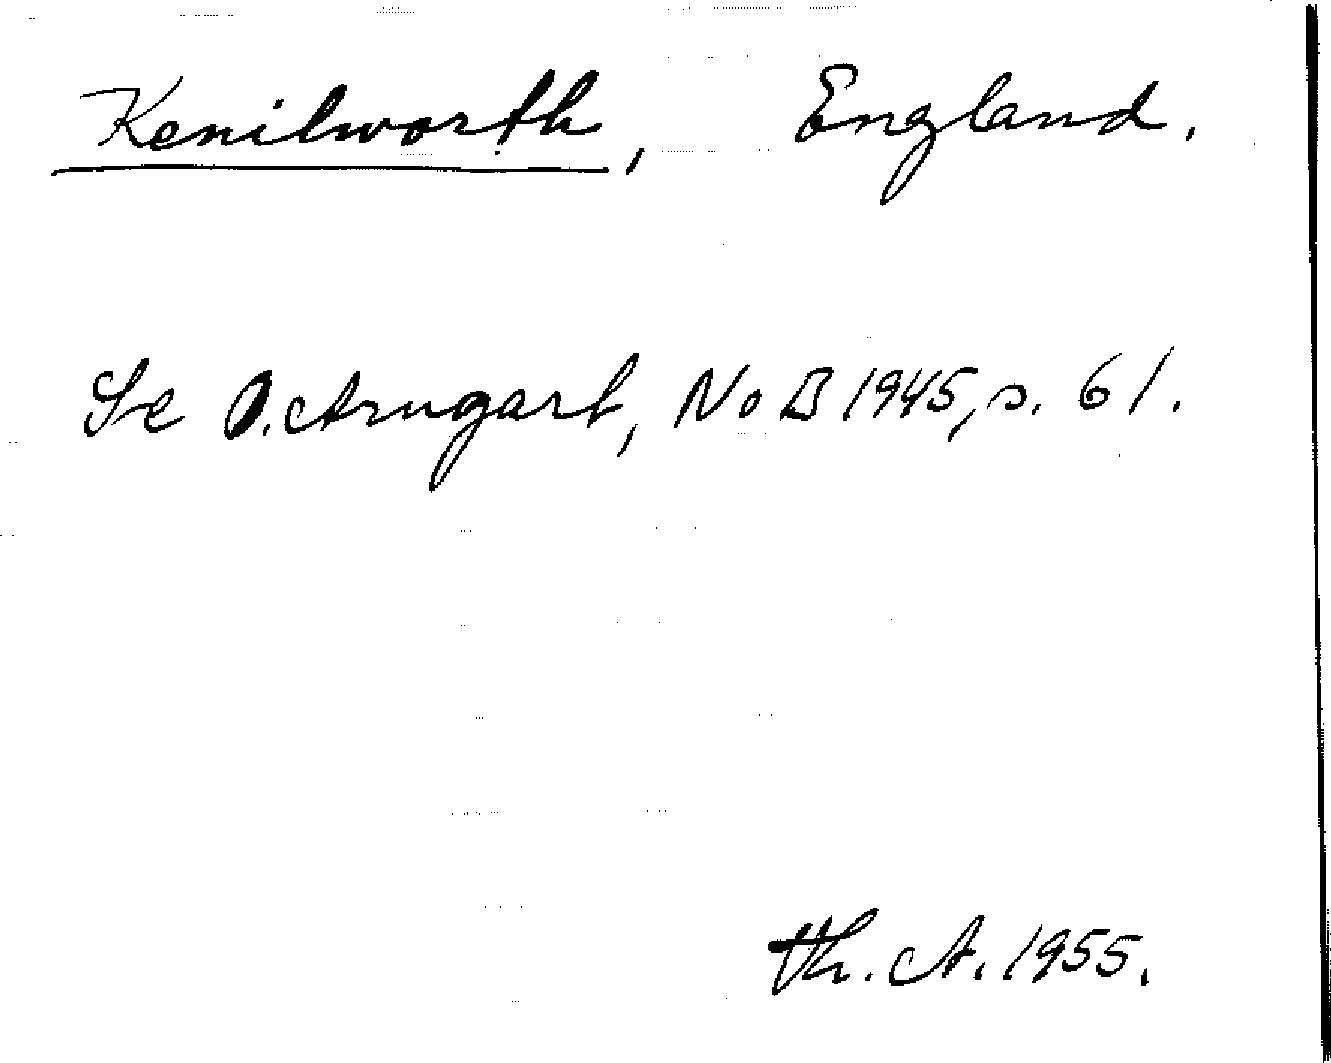 Kenilworth, England.
Se O. Arngart, NoB 1945, s. 61.
Th. A. 1955.